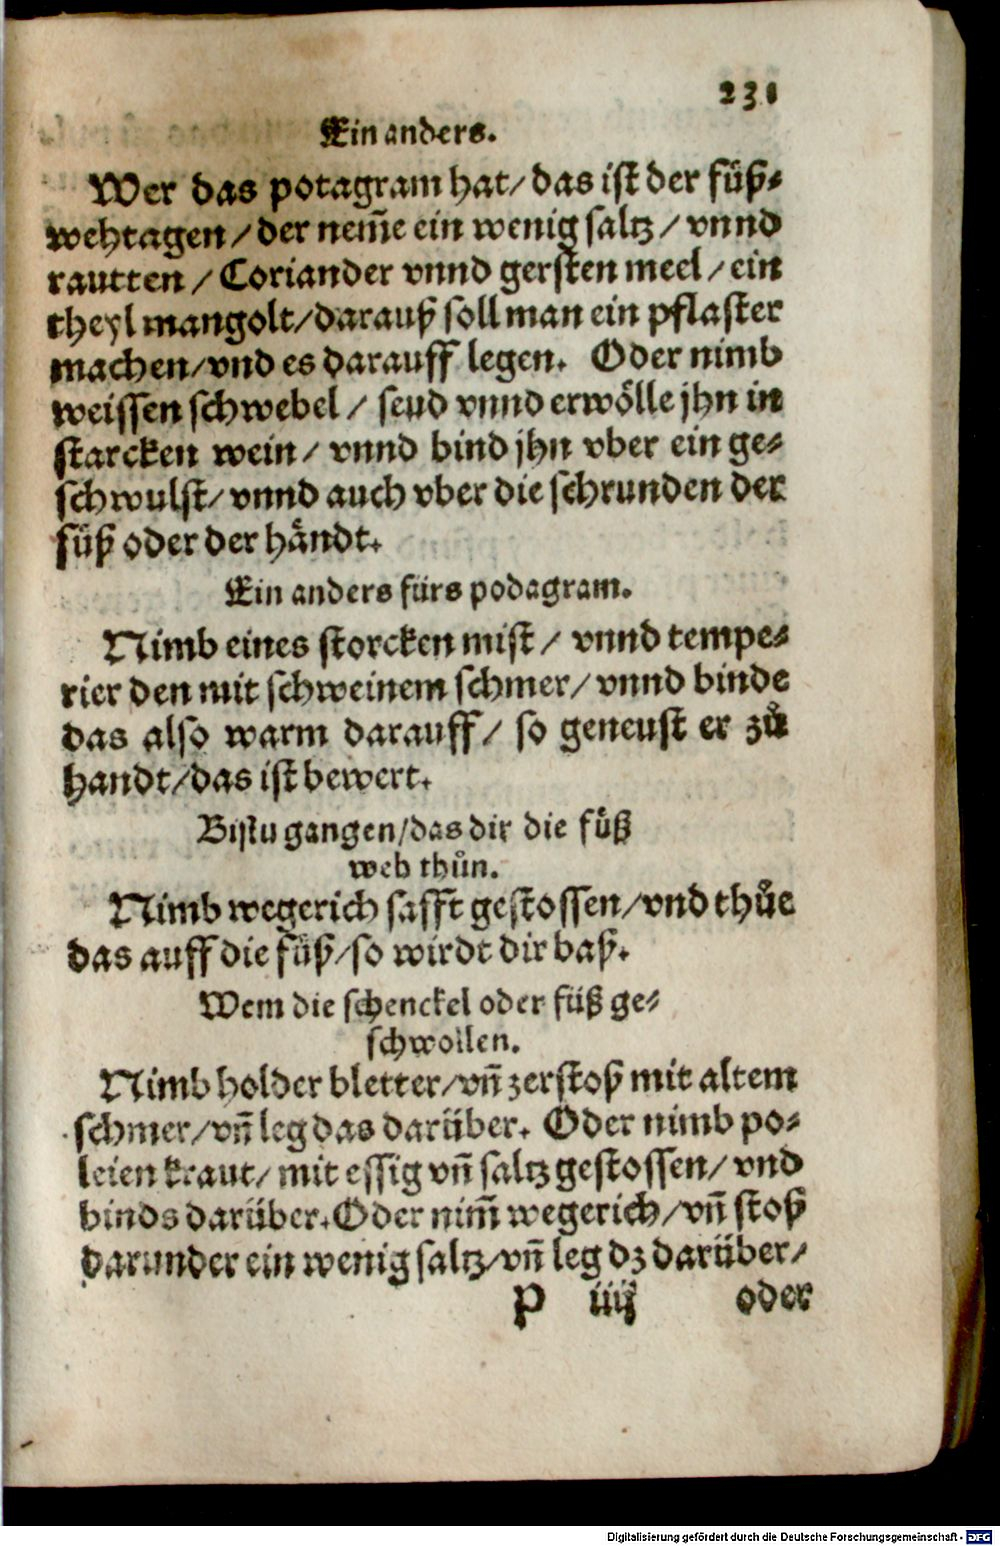 231
Ein anders.
Wer das potagram hat/ das ist der füß-
wehtagen/ der nem̃e ein wenig saltz/ vnnd
rautten/ Coriander vnnd gersten meel/ ein
theyl mangolt/ darauß soll man ein pflaster
machen/ vnd es darauff legen. Oder nimb
weissen schwebel/ seud vnnd erwölle jhn in
starcken wein/ vnnd bind jhn vber ein ge-
schwulst/ vnnd auch vber die schrunden der
füß oder der händt.
Ein anders fürs podagram.
Nimb eines storcken mist/ vnnd tempe-
rier den mit schweinem schmer/ vnnd binde
das also warm darauff/ so geneust er zů
handt/ das ist bewert.
Bistu gangen/ das dir die füß
weh thůn.
Nimb wegerich safft gestossen/ vnd thůe
das auff die füß/ so wirdt dir baß.
Wem die schenckel oder füß ge-
schwollen.
Nimb holder bletter/ vñ zerstoß mit altem
schmer/ vñ leg das darüber. Oder nimb po-
leien kraut/ mit essig vñ saltz gestossen/ vnd
binds darüber. Oder nim̃ wegerich/ vñ stoß
darunder ein wenig saltz/ vñ leg dz darüber/
P iiij oder
Digitalisierung gefördert durch die Deutsche Forschungsgemeinschaft - DFG